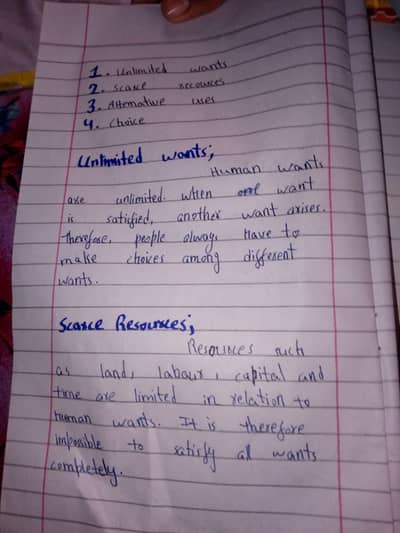 1. Unlimited wants
2. Scarce recources
3. Alternative uses
4. Choice
Unlimited wants;
Human wants
are unlimited. when one want
is satisfied, another want arises.
therefore, people always have to
make choices among different
wants.
Scarce Resources;
Resources such
as land, labour, capital and
time are limited in relation to
human wants. It is therefore
impossible to satisfy all wants
completely.